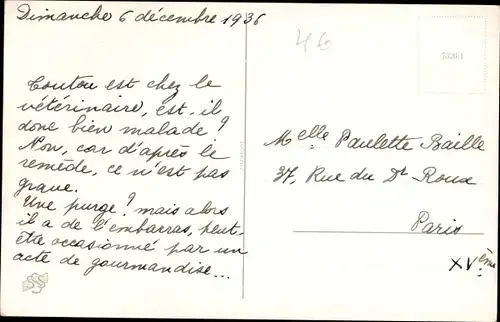 Dimanche 6 décembre 1936
46
Toutou est chez le
vétérinaire, est-il
donc bien malade?
Non, car d'après le
remède, ce n'est pas
grave.
Une purge? mais alors
il a de l'embarras, peut-
être occasionné par un
acte de gourmandise...
Melle Paulette Baille
37, Rue du Dt Roux
Paris
XVème